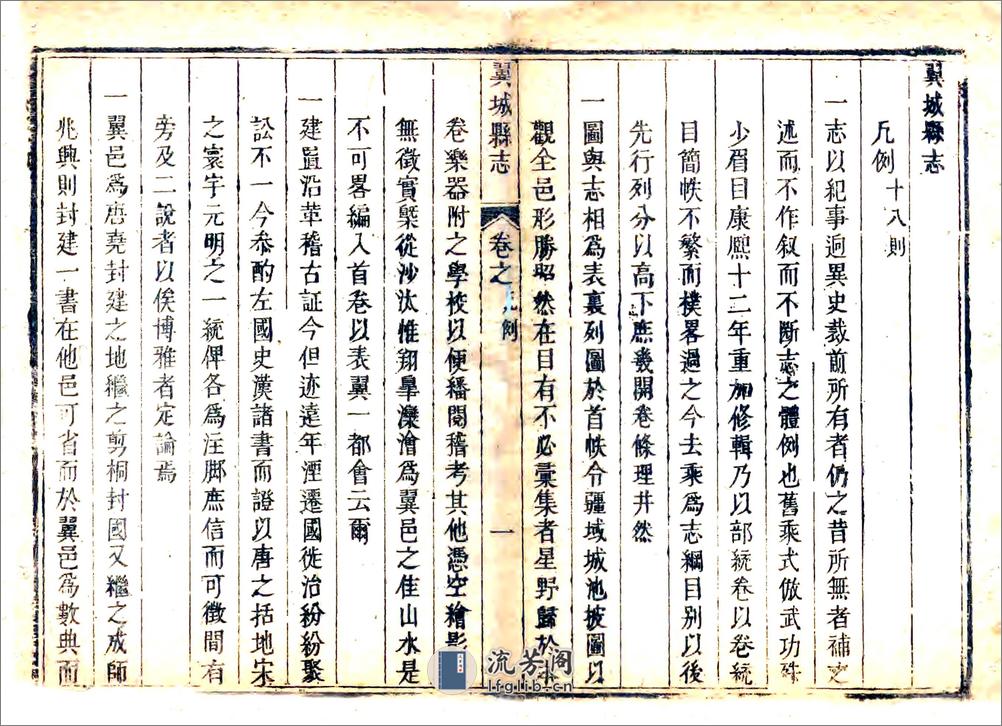 翼城縣志
凡例十八則
一志以紀事迥異史裁前所有者仍之昔所無者補之
述而不作叙而不斷志之體例也舊乘式倣武功殊
少眉目康熈十二年重加修輯乃以部統卷以卷統
目簡帙不繁而樸畧過之今去乘爲志綱目別以後
先行列分以高下庶幾開卷條理井然
一圖與志相爲表裏列圖於首帙令疆域城池披圖以
觀全邑形勝昭然在目有不必彙集者星野歸於本
翼城縣志
卷之 凡例
一
卷樂器附之學校以便繙閱稽考其他憑空繪影
無徵實槩從沙汰惟翔臯灤澮爲翼邑之佳山水是
不可畧編入首卷以表翼一都會云爾
一建置沿革稽古証今但迹遠年湮遷國徙治紛紛聚
訟不一今叅酌左國史漢諸書而證以唐之括地宋
之寰宇元明之一統俾各爲注脚庶信而可徵間有
旁及二說者以俟博雅者定論焉
一翼邑爲唐堯封建之地繼之剪桐封國又繼之成師
兆興則封建一書在他邑可省而於翼邑爲數典而
流芳閣
lfglib.cn